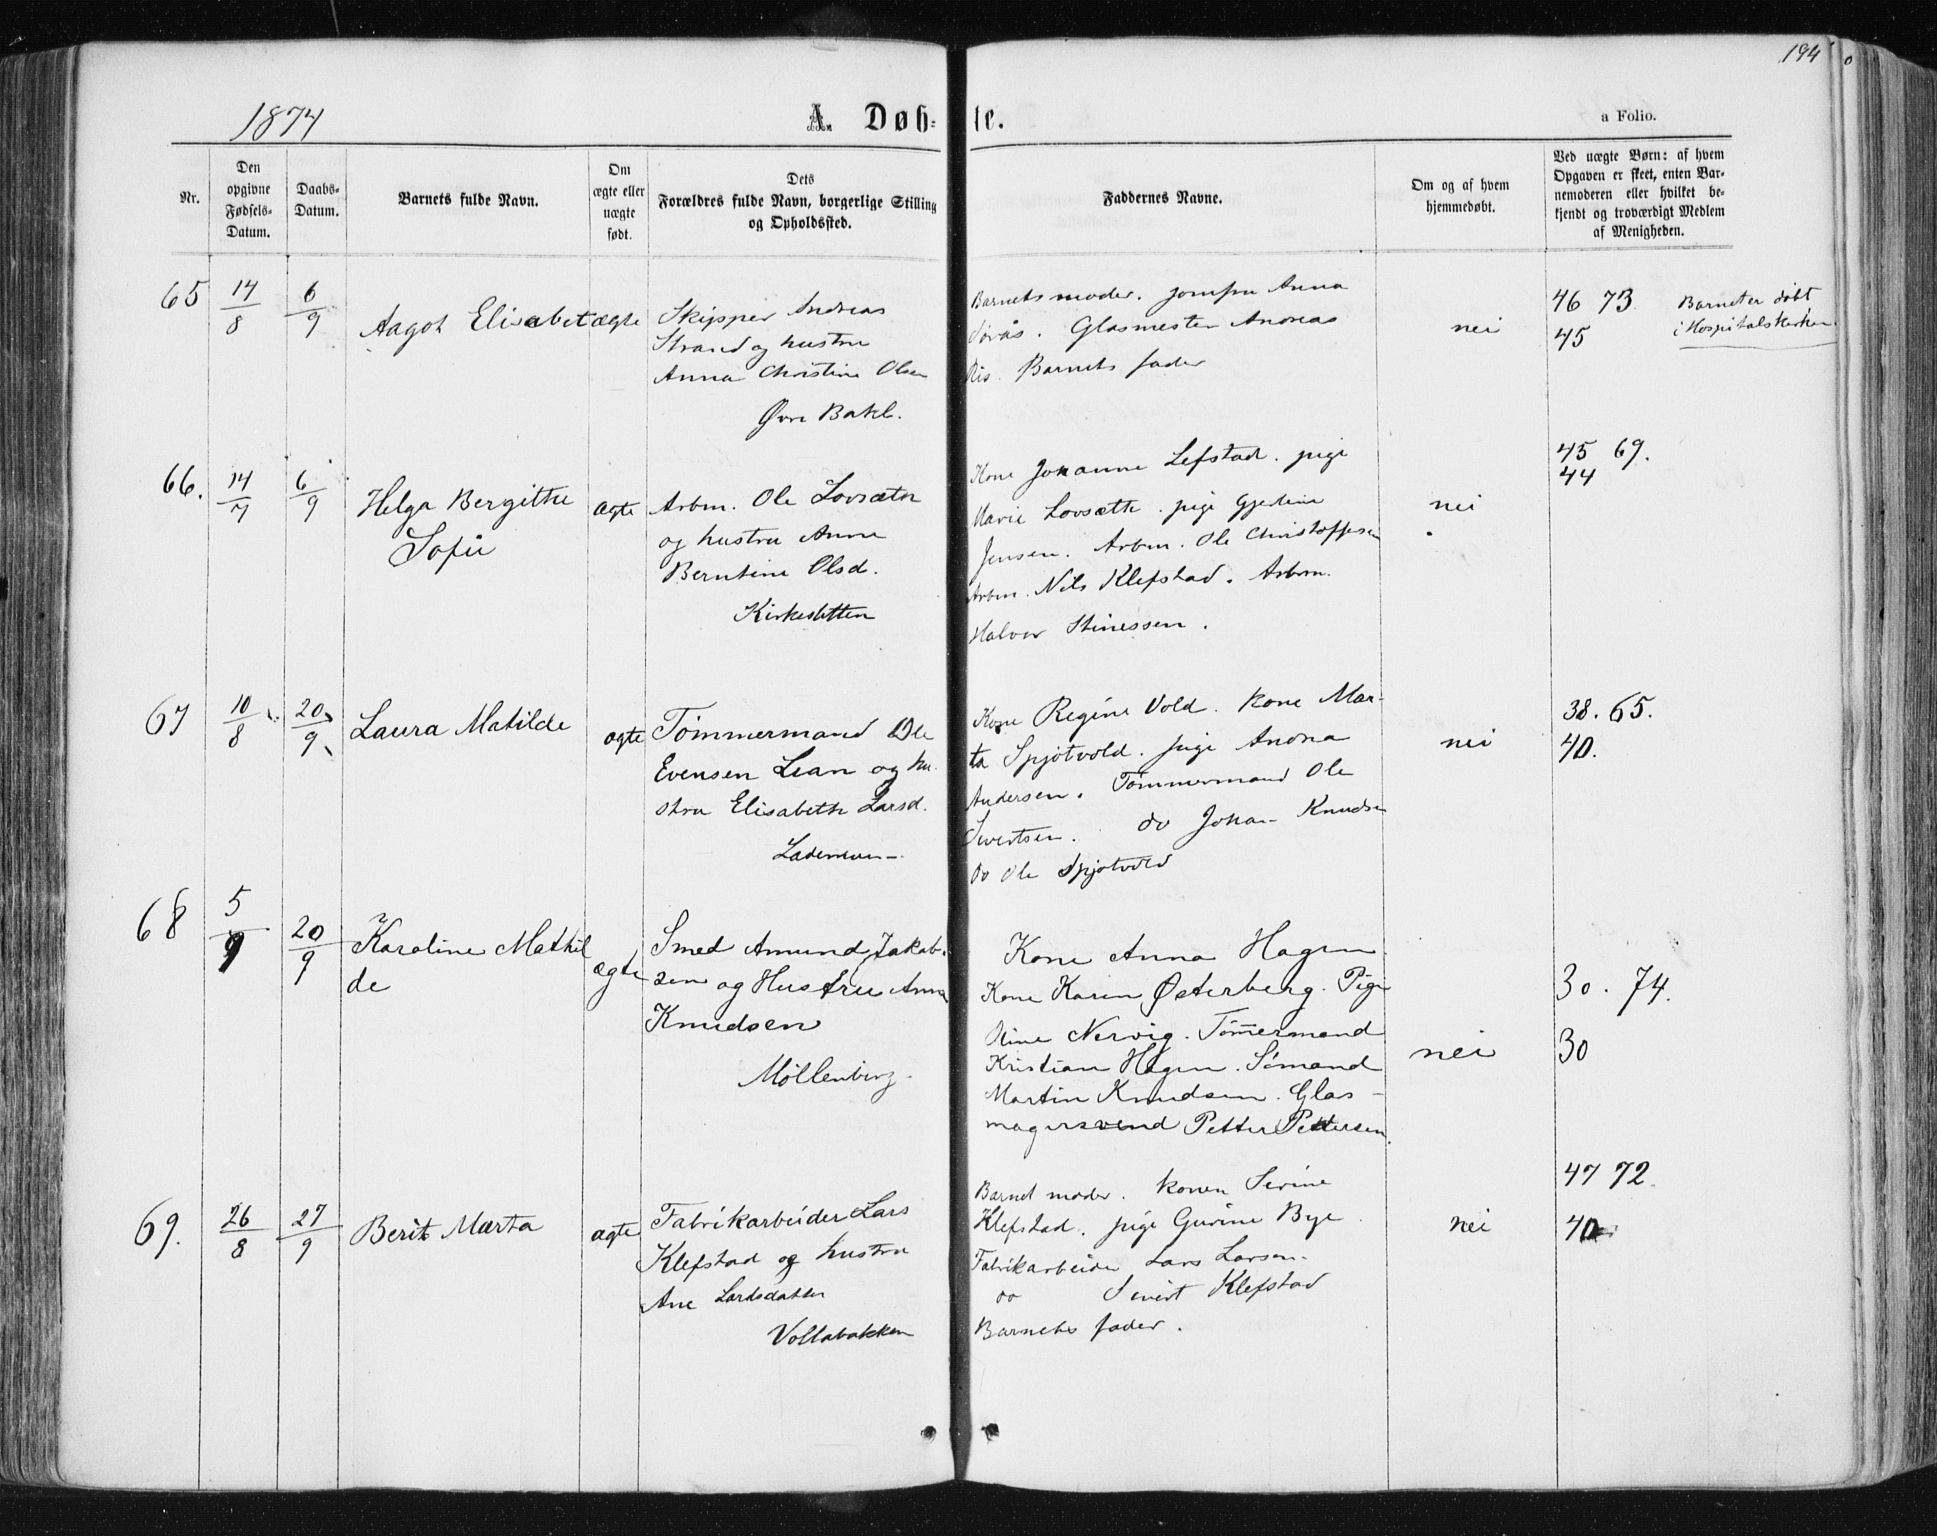 194
1874
A. Døb-
te.
a Folio.
Nr.
Den opgivne Fødsels-Datum.
Daabs-Datum.
Barnets fulde Navn.
Om ægte eller uægte født.
Dets Forældres fulde Navn, borgerlige Stilling og Opholdssted.
Faddernes Navne.
Om og af hvem hjemmedøbt.
Ved uægte Børn: af hvem Opgaven er skeet, enten Barnemoderen eller hvilket bekjendt og troværdigt Medlem af Menigheden.
65
14/8
6/9
Aagot Elisabet
ægte
Skipper Andreas
Strand og hustru
Anna Christine Olsen
Øvre Bakl.
Barnets moder. Jomfru Anna
Sørås. Glasmester Andreas
Ris. Barnets fader
nei
46 73
45
Barnet er døbt
i Hospitalskirken.
66.
14/7
6/9
Helga Bergitte
Sofie
ægte
Arbm. Ole Lovsæter
og hustru Anne
Berntine Olsd.
Kirkesletten
Kone Johanne Lefstad. pige
Marie Lovsætte. pige Gjertine
Jensen. Arbm. Ole Christoffersen
Arbm. Nils Klefstad. Arbm.
Halvor Stinessen.
nei
45 69.
44
67
10/8
20/9
Laura Matilde
ægte
Tømmermand Ole
Evensen Lian og hu-
stru Elisabeth Larsd.
Lademoen
Kone Regine Vold. Kone Mar-
ta Spjøtvold. pige Andrea
Andersen. Tømmermand Ole
Sivertsen. do Johan Knudsen
do Ole Spjøtvold
nei
38. 65.
40.
68
5/9
20/9
Karoline Mathil
de
ægte
Smed Amund Jakob-
sen og Hustru Anna
Knudsen
Möllenberg.
Kone Anna Hagen
Kone Karen Østerberg. Pige
Stine Nervig. Tømermand
Kristian Hagen. Sømand
Martin Knudsen. Glas-
magersvend Petter Pettersen.
nei
30. 74.
30
69.
26/8
27/9
Berit Marta
ægte
Fabrikarbeider Lars
Klefstad og hustru
Ane Lardsdatter
Vollabakken
Barnet moder. konen Serine
Klefstad. pige Gurine Bye
Fabrikarbeider Lars Larsen.
do Sivert Klefstad
Barnets fader.
nei
47 72.
40